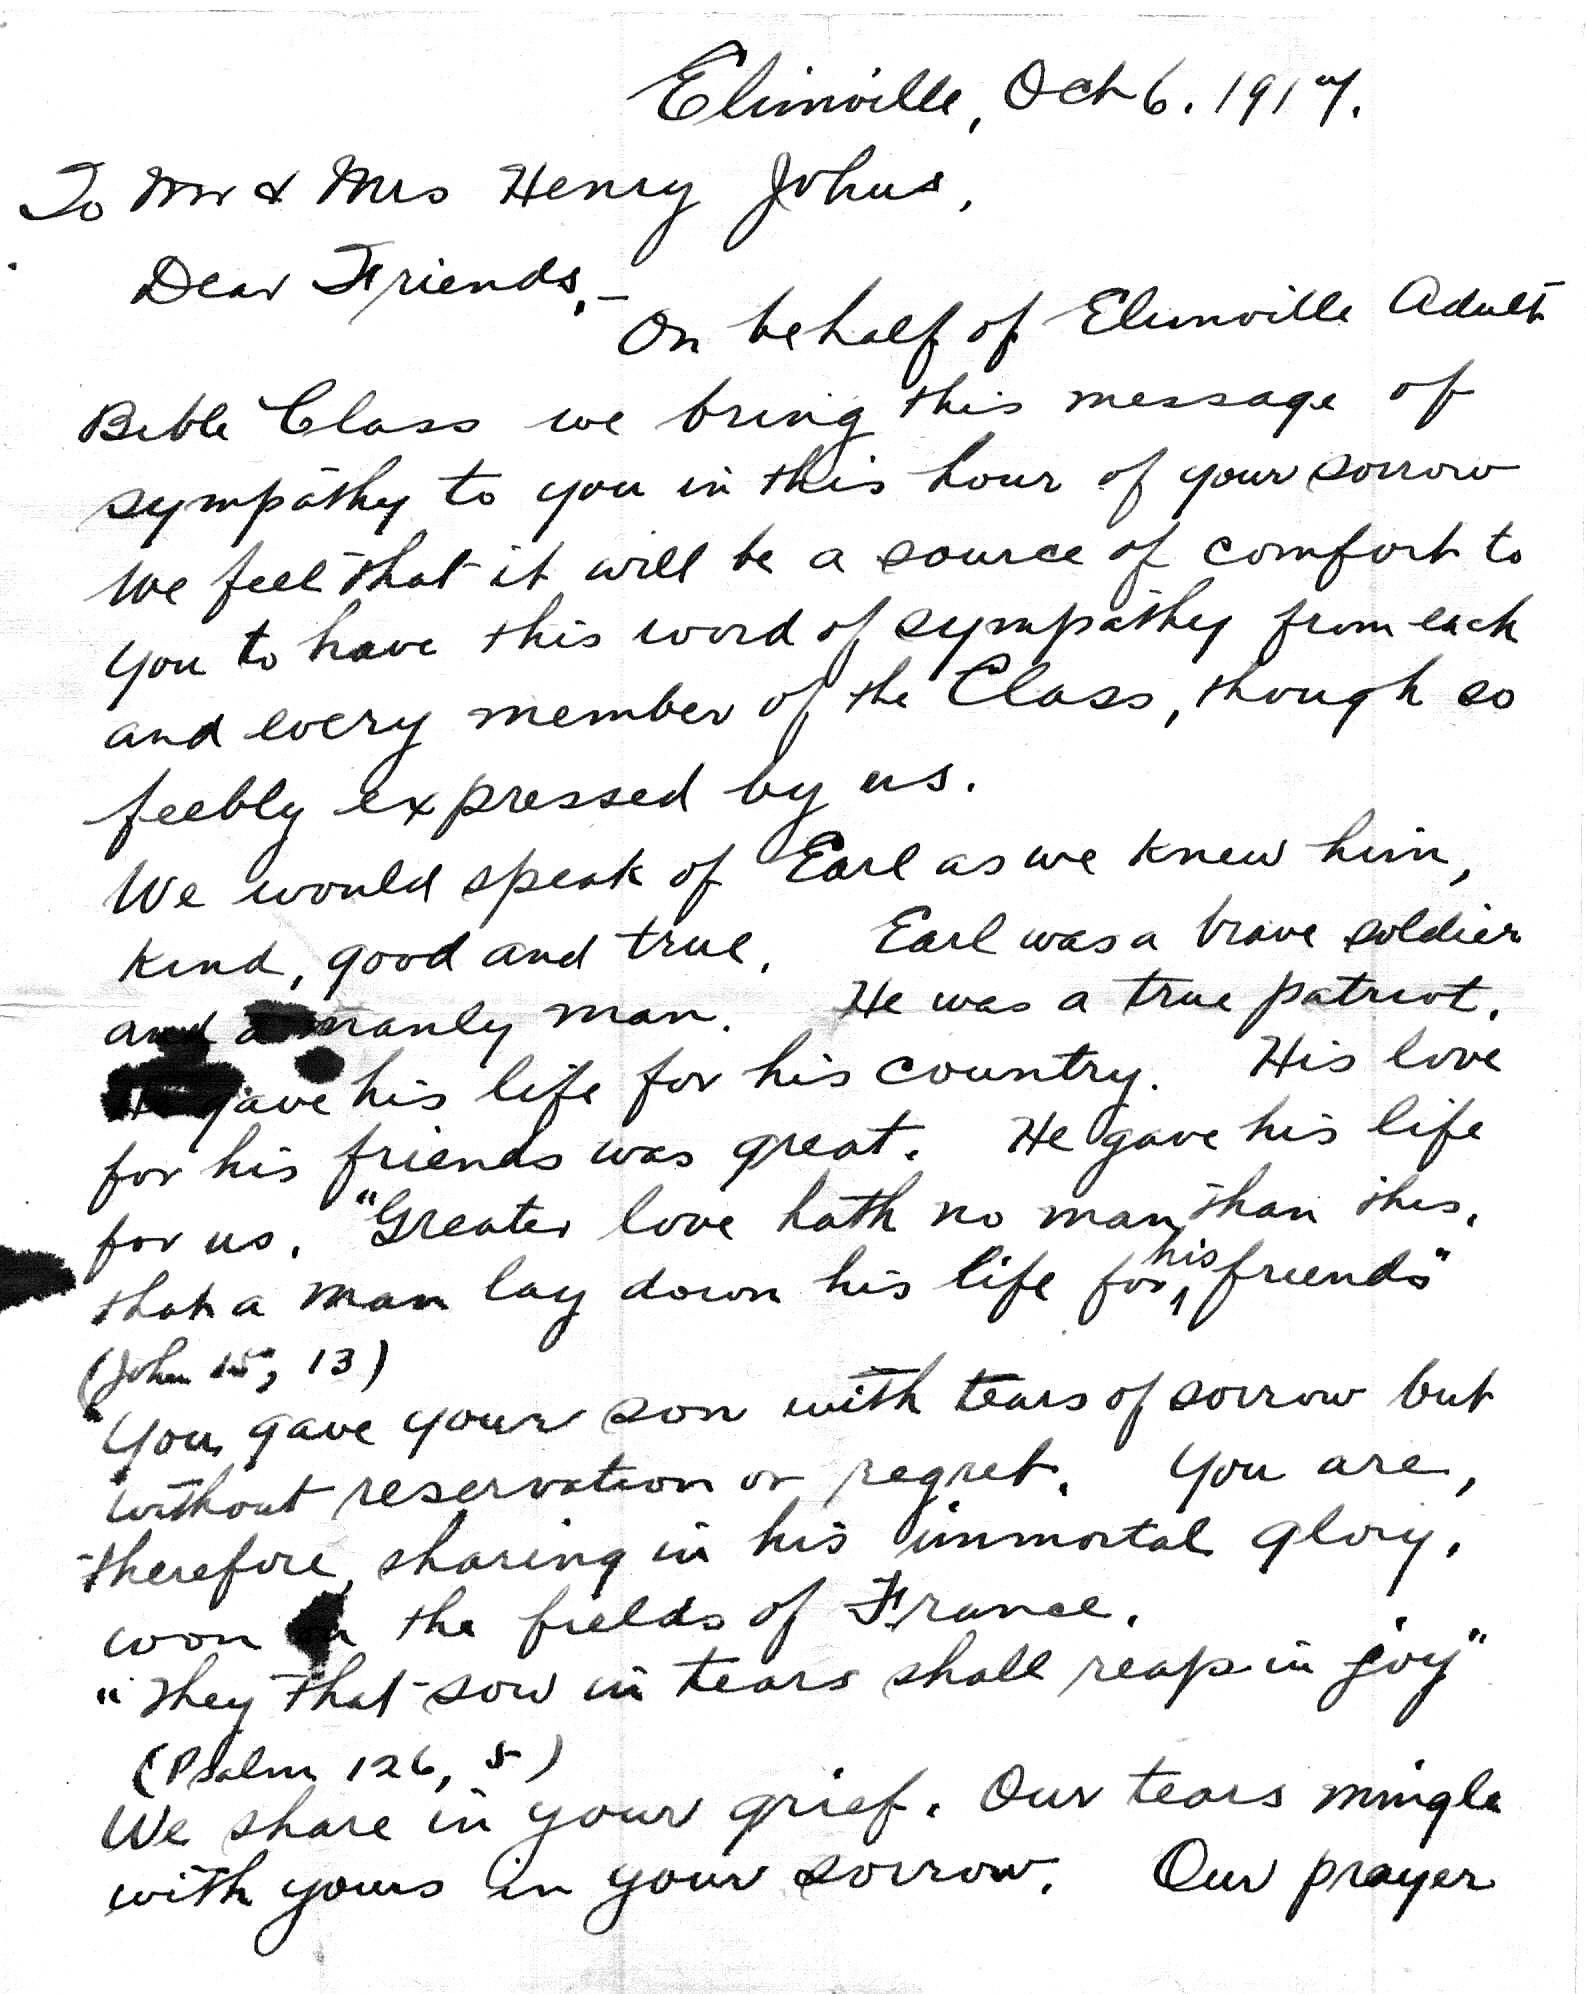 Elimville, Oct 6. 1917.
To Mr & Mrs Henry Johns,
Dear Friends,—
On behalf of Elimville Adult
Bible Class we bring this message of
sympathy to you in this hour of your sorrow
We feel that it will be a source of comfort to
you to have this word of sympathy from each
and every member of the Class, though so
feebly expressed by us.
We would speak of Earl as we knew him,
kind, good and true. Earl was a brave soldier
and a manly man. He was a true patriot.
He gave his life for his country. His love
for his friends was great. He gave his life
for us. "Greater love hath no man than this,
that a man lay down his life for his friends"
(John 15, 13)
"You gave your son with tears of sorrow but
without reservation or regret. You are,
therefore, sharing in his immortal glory,
won the fields of France.
"They that sow in tears shall reap in joy"
(Psalm 126, 5)
We share in your grief. Our tears mingle
with yours in your sorrow. Our prayer